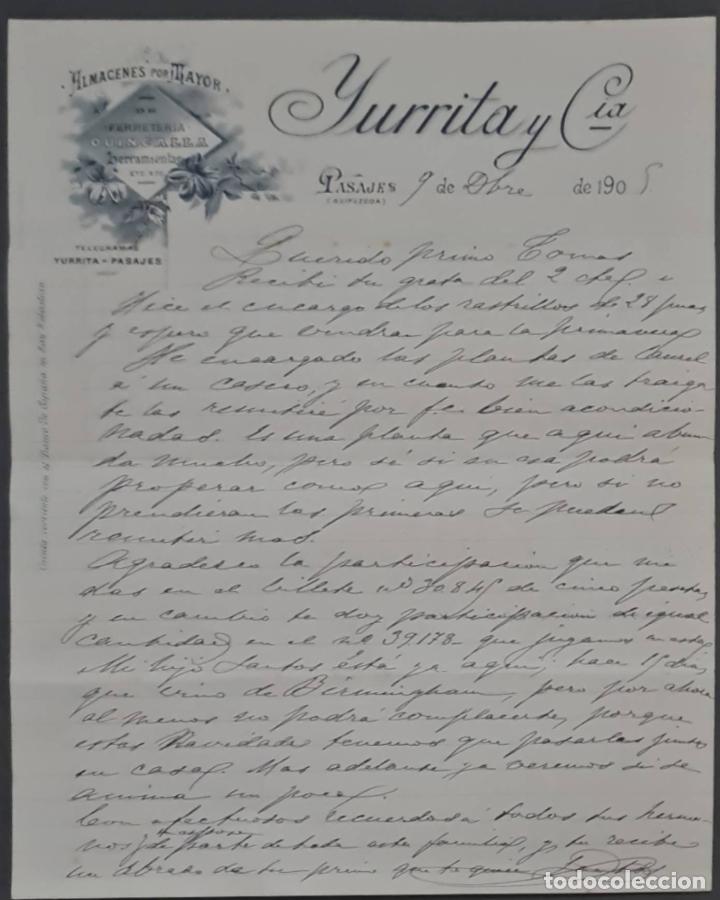 ALMACENES POR MAYOR
DE
FERRETERIA
QUINCALLA
Herramientas
ETC. ETC.
TELEGRAMAS
YURRITA - PASAJES
Yurrita y Cia
PASAJES 9 de Dbre de 1905
(GUIPUZCOA)
Querido primo Tomas
Recibi tu grata del 2 del
Hice el encargo de los rastrillos de 28 puas
y espero que vendran para la primavera
He encargado las plantas de laurel
á un casero, y en cuanto me las traiga
te las remitiré por fc bien acondicio
nadas. Es una planta que aqui abun
da mucho, pero sé si en esa podrá
properar como aqui, pero si no
prendieran las primeras se pueden
remitir mas.
Agradesco la participacion que me
das en el billete nº 30.845 de cinco pesetas
y en cambio te doy participacion de igual
cantidad en el nº 39.178 que jugamos
Mi hijo Santos está ya aqui; hace 15 dias
que vino de Birmingham, pero por ahora
al menos no podrá complacerte, porque
estas Navidades tenemos que pasarlas juntos
en casa. Mas adelante ya veremos si se
anima un poco.
Con afectuosos recuerdos á todos tus herma-
nos de parte de toda esta familia, y tu recibe
un abrazo de tu primo que te quiere
todocoleccion
todocoleccion.net